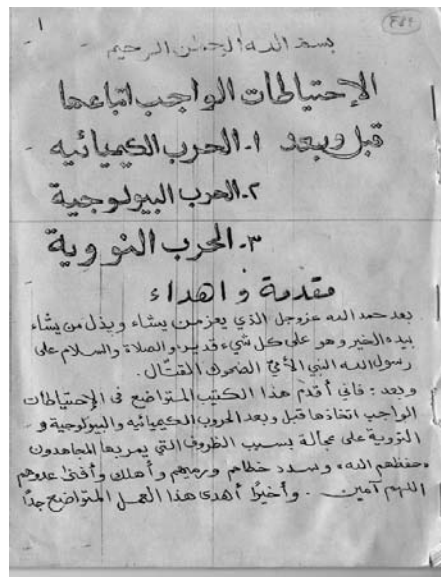 ١
٢٤٩
بسم الله الرحمن الرحيم
الإحتياطات الواجب اتباعها
قبل وبعد ١- الحرب الكيميائيه
٢- الحرب البيولوجية
٣- الحرب النووية
مقدمة و اهداء
بعد حمد الله عزوجل الذي يعز من يشاء ويذل من يشاء
بيده الخير وهو على كل شيء قدير والصلاة والسلام على
رسول الله النبي الأمي الضحوك القتّال.
وبعد: فاني أقدم هذا الكتيب المتواضع في الإحتياطات
الواجب اتخاذها قبل وبعد الحروب الكيميائيه والبيولوجية و
النووية على عجالة بسبب الظروف التي يمر بها المجاهدون
«حفظهم الله» وسدد خطاهم ورميهم وأهلك وأفنى عدوهم
اللهم آمين. وأخيرًا أهدى هذا العمل المتواضع جدًا